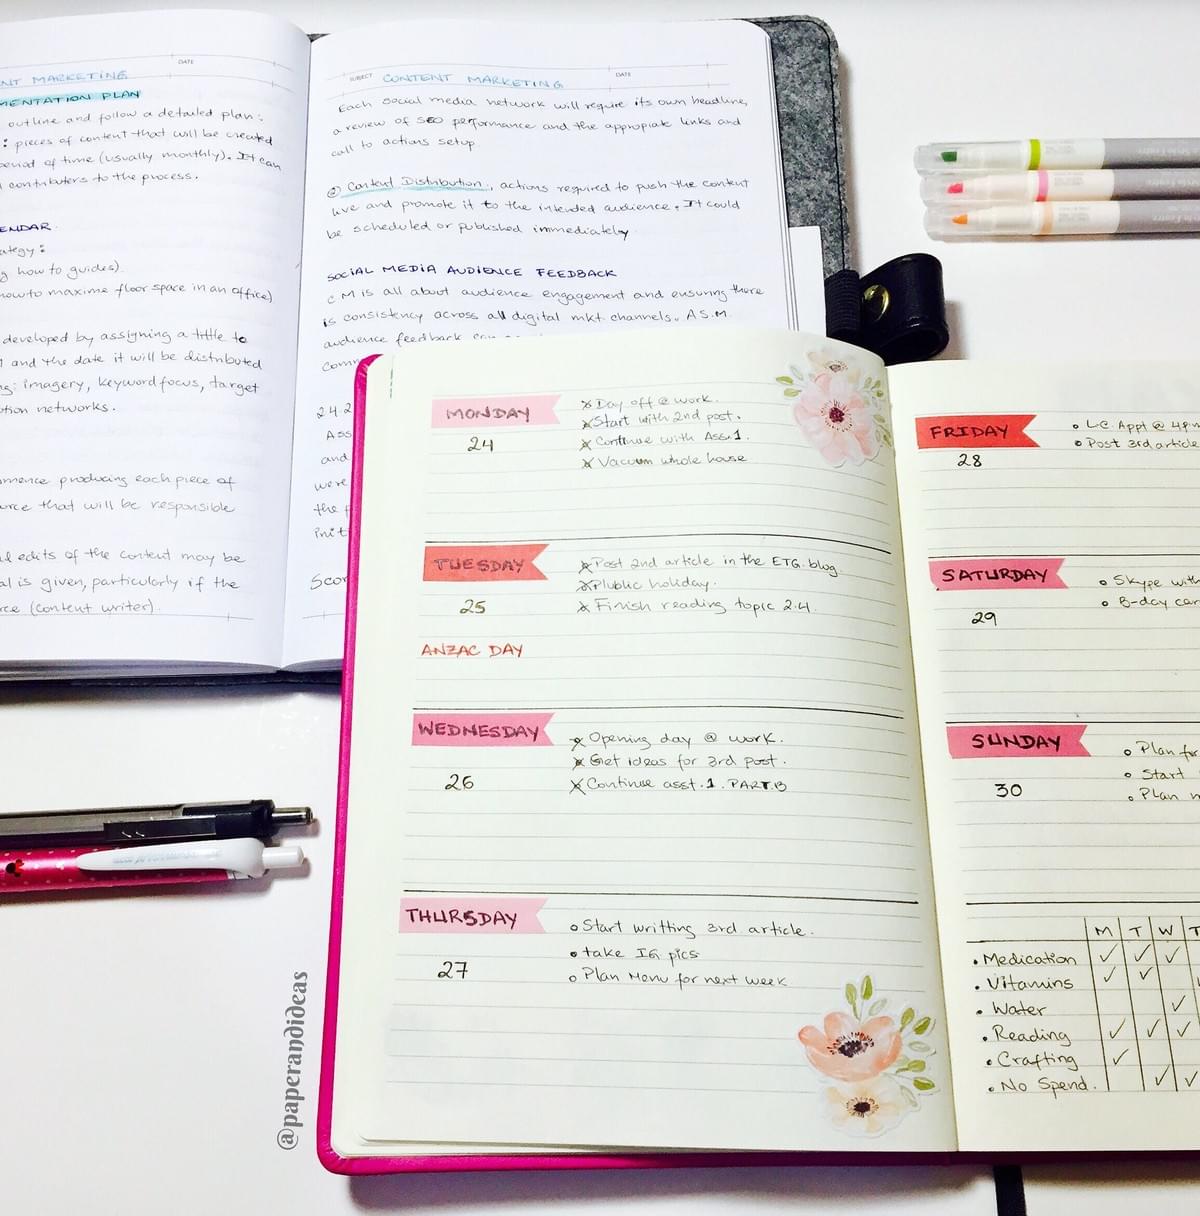 NT MARKETING
DATE
MENTATION PLAN
outline and follow a detailed plan:
: pieces of content that will be created
period of time (usually monthly). It can
contributers to the process.
ENDAR.
ategy:
g how to guides).
how to maxime floor space in an office)
developed by assigning a tittle to
and the date it will be distributed
ng: imagery, keyword focus, target
tion networks.
mmence producing each piece of
urce that will be responsible
edits of the content may be
al is given, particularly if the
rce (content writer).
SUBJECT CONTENT MARKETING DATE
Each social media network will require its own headline,
a review of SEO performance and the appropiate links and
call to actions setup.
② Content Distribution: actions required to push the content
live and promote it to the intended audience. It could
be scheduled or published immediately
SOCIAL MEDIA AUDIENCE FEEDBACK
CM is all about audience engagement and ensuring there
is consistency across all digital mkt channels. A S.M.
audience feedback can
comm
2.4.2
Ass
and
were
the
init
Scor
MONDAY
24
x Day off @ work.
x Start with 2nd post.
x Continue with Ass.1.
x Vacuum whole house
TUESDAY
25
ANZAC DAY
x Post 2nd article in the ETG blog.
x Plublic holiday.
x Finish reading topic 2.4.
WEDNESDAY
26
x Opening day @ work.
x Get ideas for 3rd post.
x Continue asst.1. PART.B
THURSDAY
27
o Start writting 3rd article.
• take IG pics
o Plan Menu for next week
FRIDAY
28
o L.C. Appt @ 4pm
• Post 3rd article
SATURDAY
29
o Skype with
o B-day car
SUNDAY
30
o Plan for
o Start
o Plan
M T W T
• Medication ✓ ✓ ✓
• Vitamins ✓ ✓
• Water ✓
• Reading ✓ ✓ ✓
• Crafting ✓
• No Spend. ✓ ✓
@paperandideas